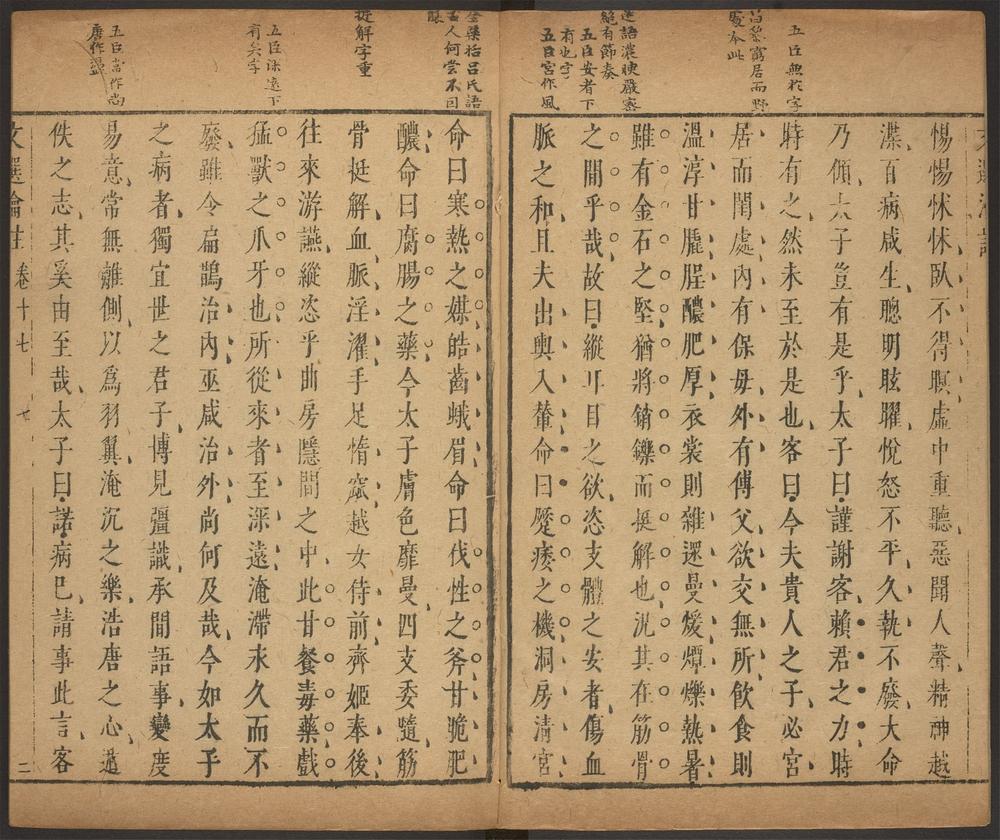 五臣無於字
昌黎窮居而野
處本此
造語濃腴嚴密
絕有節奏
五臣安者下
有也字
五臣宮作風
惕惕怵怵臥不得瞑虛中重聽惡聞人聲精神越
渫百病咸生聰明眩曜悅怒不平久執不廢大命
乃傾太子豈有是乎太子曰謹謝客賴君之力時
時有之然未至於是也客曰今夫貴人之子必宮
居而閨處內有保母外有傅父欲交無所飲食則
溫淳甘膬脭醲肥厚衣裳則雜遝曼煖燂爍熱暑
雖有金石之堅猶將銷鑠而挺解也況其在筋骨
之間乎哉故曰縱耳目之欲恣支體之安者傷血
脈之和且夫出輿入輦命曰蹷痿之機洞房清宮
全櫽括呂氏語
古人何嘗不回
釀
挺解字重
五臣深遠下
有矣字
五臣當作尚
唐作盪
命曰寒熱之媒皓齒蛾眉命曰伐性之斧甘脆肥
醲命曰腐腸之藥今太子膚色靡曼四支委隨筋
骨挺解血脈淫濯手足惰窳越女侍前齊姬奉後
往來游讌縱恣乎曲房隱間之中此甘餐毒藥戲
猛獸之爪牙也所從來者至深遠淹滯永久而不
廢雖令扁鵲治內巫咸治外尚何及哉今如太子
之病者獨宜世之君子博見彊識承間語事變度
易意常無離側以為羽翼淹沉之樂浩唐之心遁
佚之志其奚由至哉太子曰諾病已請事此言客
文選瀹注 卷十七 七 二